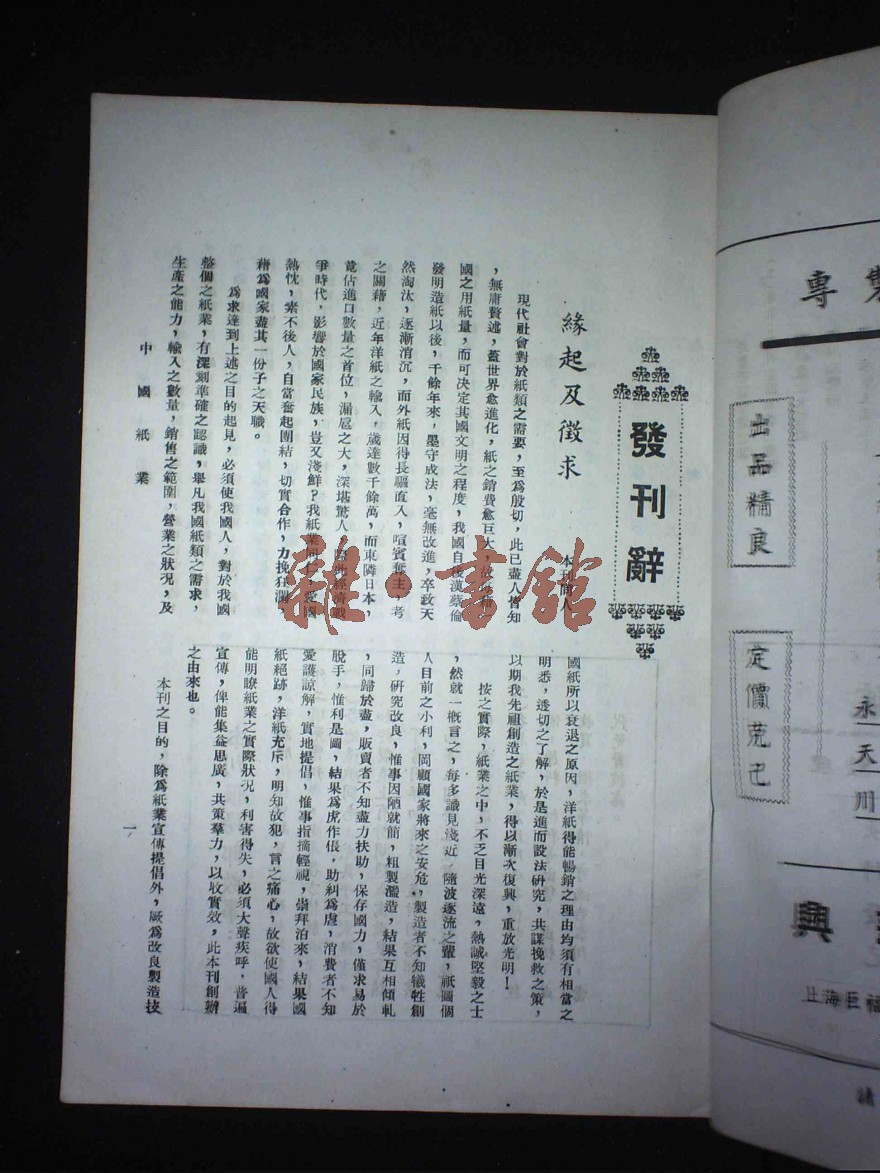 發刊辭
緣起及徵求
本刊同人
現代社會對於紙類之需要，至爲殷切，此已盡人皆知
，無庸贅述，蓋世界愈進化，紙之銷費愈巨大，故
國之用紙量，而可決定其國文明之程度，我國自後漢蔡倫
發明造紙以後，千餘年來，墨守成法，毫無改進，卒致天
然淘汰，逐漸消沉，而外紙因得長驅直入，喧賓奪主，考
之關藉，近年洋紙之輸入，歲達數千餘萬，而東隣日本，
竟佔進口數量之首位，漏巵之大，深堪驚人，際此經濟戰
爭時代，影響於國家民族，豈又淺鮮？我紙業同仁，愛國
熱忱，素不後人，自當奮起團結，切實合作，力挽狂瀾，
藉爲國家盡其一份子之天職。
爲求達到上述之目的起見，必須使我國人，對於我國
整個之紙業，有深刻準確之認識，舉凡我國紙類之需求，
生產之能力，輸入之數量，銷售之範圍，營業之狀況，及
國紙所以衰退之原因，洋紙得能暢銷之理由均須有相當之
明悉，透切之了解，於是進而設法研究，共謀挽救之策，
以期我先祖創造之紙業，得以漸次復興，重放光明！
按之實際，紙業之中，不乏目光深遠，熱誠堅毅之士
，然就一概言之，每多識見淺近，隨波逐流之輩，祇圖個
人目前之小利，罔顧國家將來之安危，製造者不知犧牲創
造，研究改良，惟事因陋就簡，粗製濫造，結果互相傾軋
，同歸於盡，販賣者不知盡力扶助，保存國力，僅求易於
脫手，惟利是圖，結果爲虎作倀，助糾爲虐，消費者不知
愛護諒解，實地提倡，惟事指摘輕視，崇拜泊來，結果國
紙絕跡，洋紙充斥，明知故犯，言之痛心，故欲使國人得
能明瞭紙業之實際狀況，利害得失，必須大聲疾呼，普遍
宣傳，俾能集益思廣，共策羣力，以收實效，此本刊創辦
之由來也。
本刊之目的，除爲紙業宣傳提倡外，厥爲改良製造技
中國紙業
一
專製
出品精良
定價克己
永
天
川
興
上海巨福
雜·書館